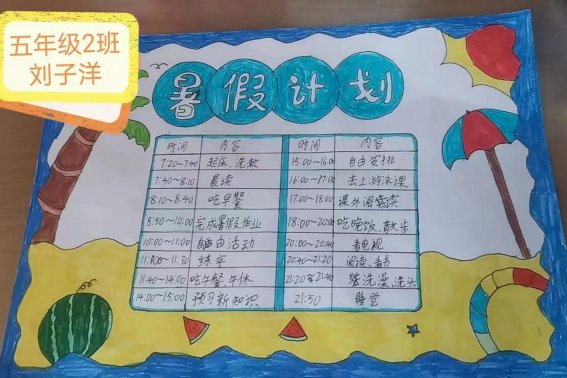 五年级2班
刘子洋
暑假计划
时间 内容 时间 内容
7:20~7:40 起床、洗漱 15:00~16:00 自由安排
7:40~8:10 晨读 16:00~17:00 去上游泳课
8:10~8:40 吃早餐 17:00~18:00 课外阅读
8:50~10:00 完成暑假作业 18:00~20:00 吃晚饭、散步
10:00~11:00 自由活动 20:00~20:40 看电视
11:00~11:30 练字 20:40~21:20 阅读、看书
11:40~14:00 吃午餐、午休 21:20~21:40 洗澡、洗头
14:00~15:00 预习新知识 21:50 睡觉